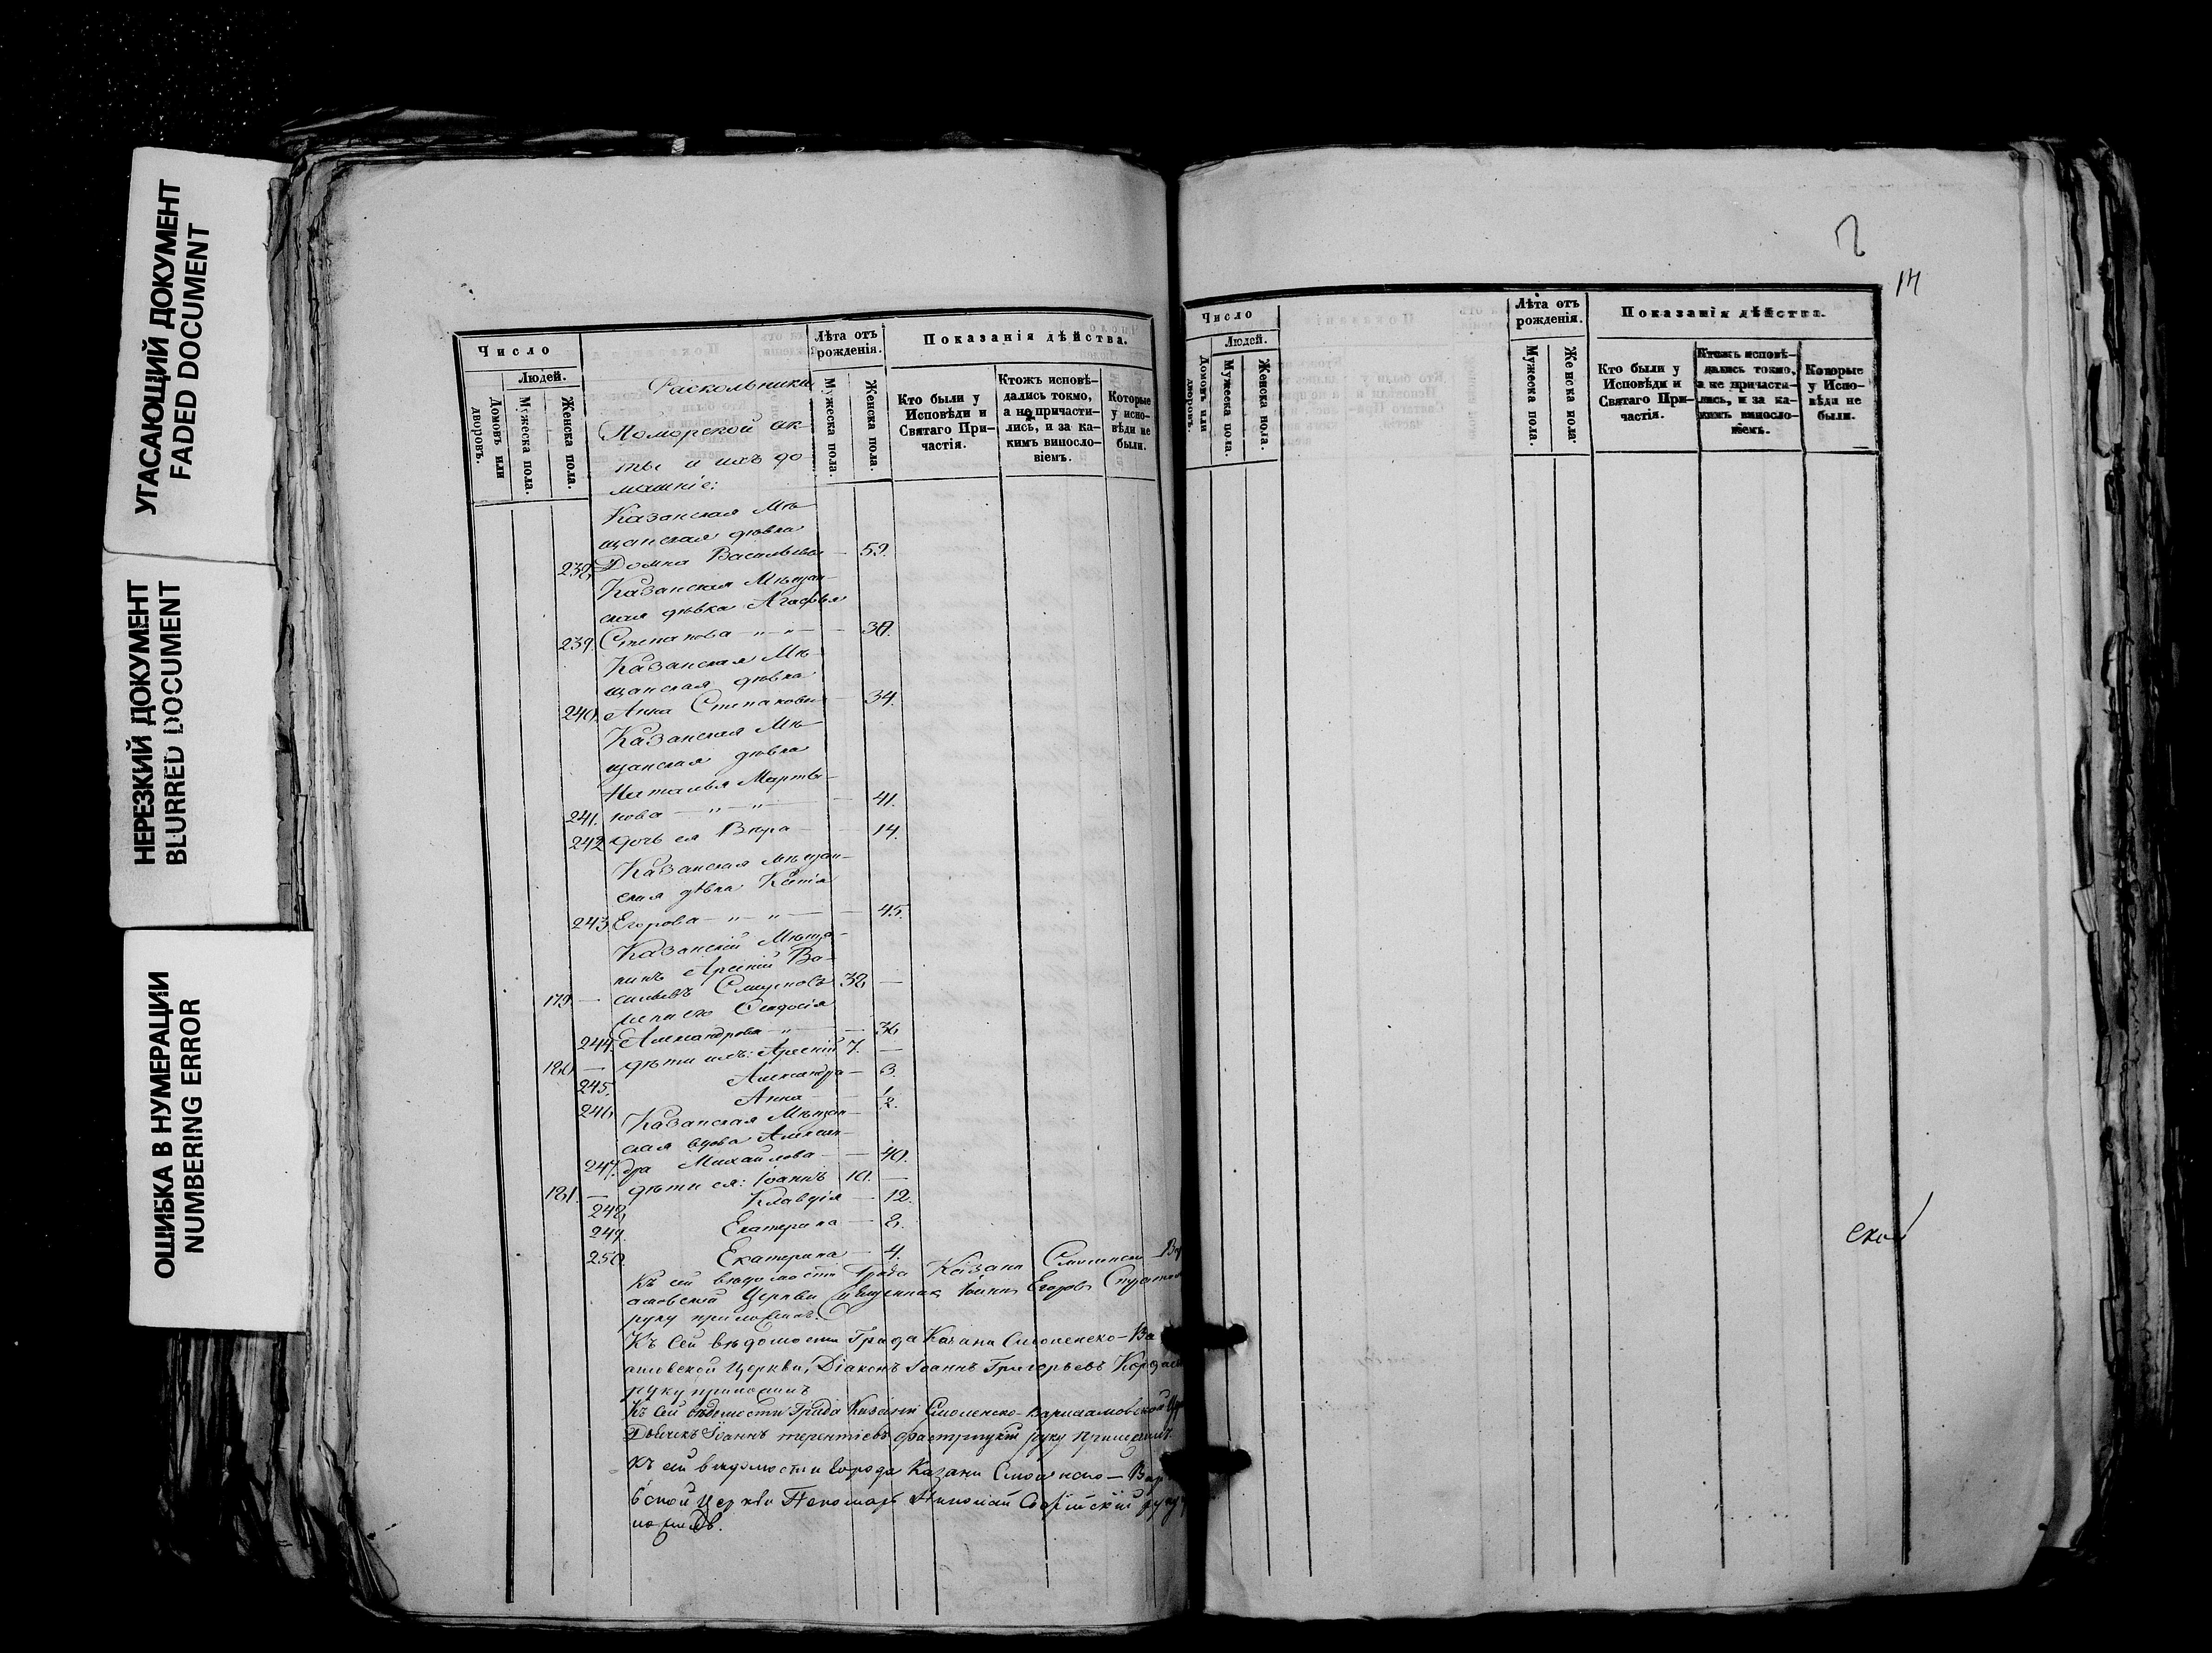 УГАСАЮЩИЙ ДОКУМЕНТ
FADED DOCUMENT
НЕРЕЗКИЙ ДОКУМЕНТ
BLURRED DOCUMENT
ОШИБКА В НУМЕРАЦИИ
NUMBERING ERROR
Число
Людей.
Домовъ или дворовъ.
Мужеска пола.
Женска пола.
Лѣта отъ рожденія.
Мужеска пола.
Женска пола.
Показанія дѣйства.
Кто были у Исповѣди и Святаго Причастія.
Ктожъ исповѣдались токмо, а не причастились, и за какимъ винословіемъ.
Которые у исповѣди не были.
Раскольники
Поморской сек-
ты и ихъ до-
машніе:
Казанская Мѣ-
щанская дѣвка
238. Домна Васильева — 52.
Казанская Мѣщан-
ская дѣвка Агафья
239. Степанова — " — " —
Казанская Мѣ-
щанская дѣвка
240. Анна Степанова — 34.
Казанская Мѣ-
щанская дѣвка
Наталья Марты-
241. нова — " — " — 41.
242. дочь ея Вѣра — 14.
Казанская Мѣщан-
ская дѣвка Ксенія
243. Егорова — " — " — 45.
Казанскій Мѣща-
нинъ Арсеній Ва-
179. — сильевъ Смирновъ 38 —
жена его Ѳеодосія
244. Александрова — " — 36
180. — дѣти ихъ: Арсеній 7. —
245. Александра — 3.
246. Анна — ½.
Казанская Мѣщан-
ская вдова Алексан-
247. дра Михайлова — 40.
181. — дѣти ея: Іоаннъ 10. —
248. Клавдія — 12.
249. Екатерина — 8.
250. Екатерина — 4.
Къ сей вѣдомости Града Казани Смоленско-Вар
аамовской Церкви Священникъ Іоаннъ Егоровъ
руку приложилъ.
Къ сей вѣдомости Града Казани Смоленско-Ва
амовской Церкви, Діаконъ Іоаннъ Григорьевъ
руку приложилъ
Къ сей вѣдомости Града Казани Смоленско-Варлаамовской Цер
Дьячекъ Іоаннъ Терентіевъ руку приложилъ.
Къ сей вѣдомости города Казани Смоленско-Вар
вской церкви Пономарь Николай Софійскій руку
ложилъ.
14
Число
Людей.
Домовъ или дворовъ.
Мужеска пола.
Женска пола.
Лѣта отъ рожденія.
Мужеска пола.
Женска пола.
Показанія дѣйства.
Кто были у Исповѣди и Святаго Причастія.
Ктожъ исповѣдались токмо, а не причастились, и за какимъ винословіемъ.
Которые у Исповѣди не были.